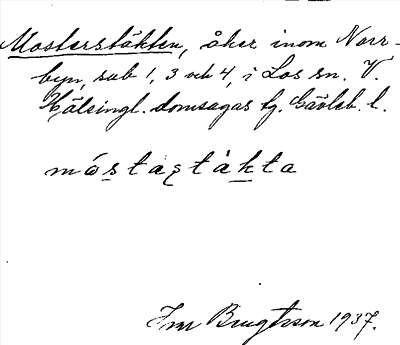 Mosterstäkten, åker inom Norr-
byn, sub 1, 3 och 4, i Los sn. V.
Hälsingl. domsagas tg. Gävleb. l.
móstaştàkta
Im Brugterson 1937.